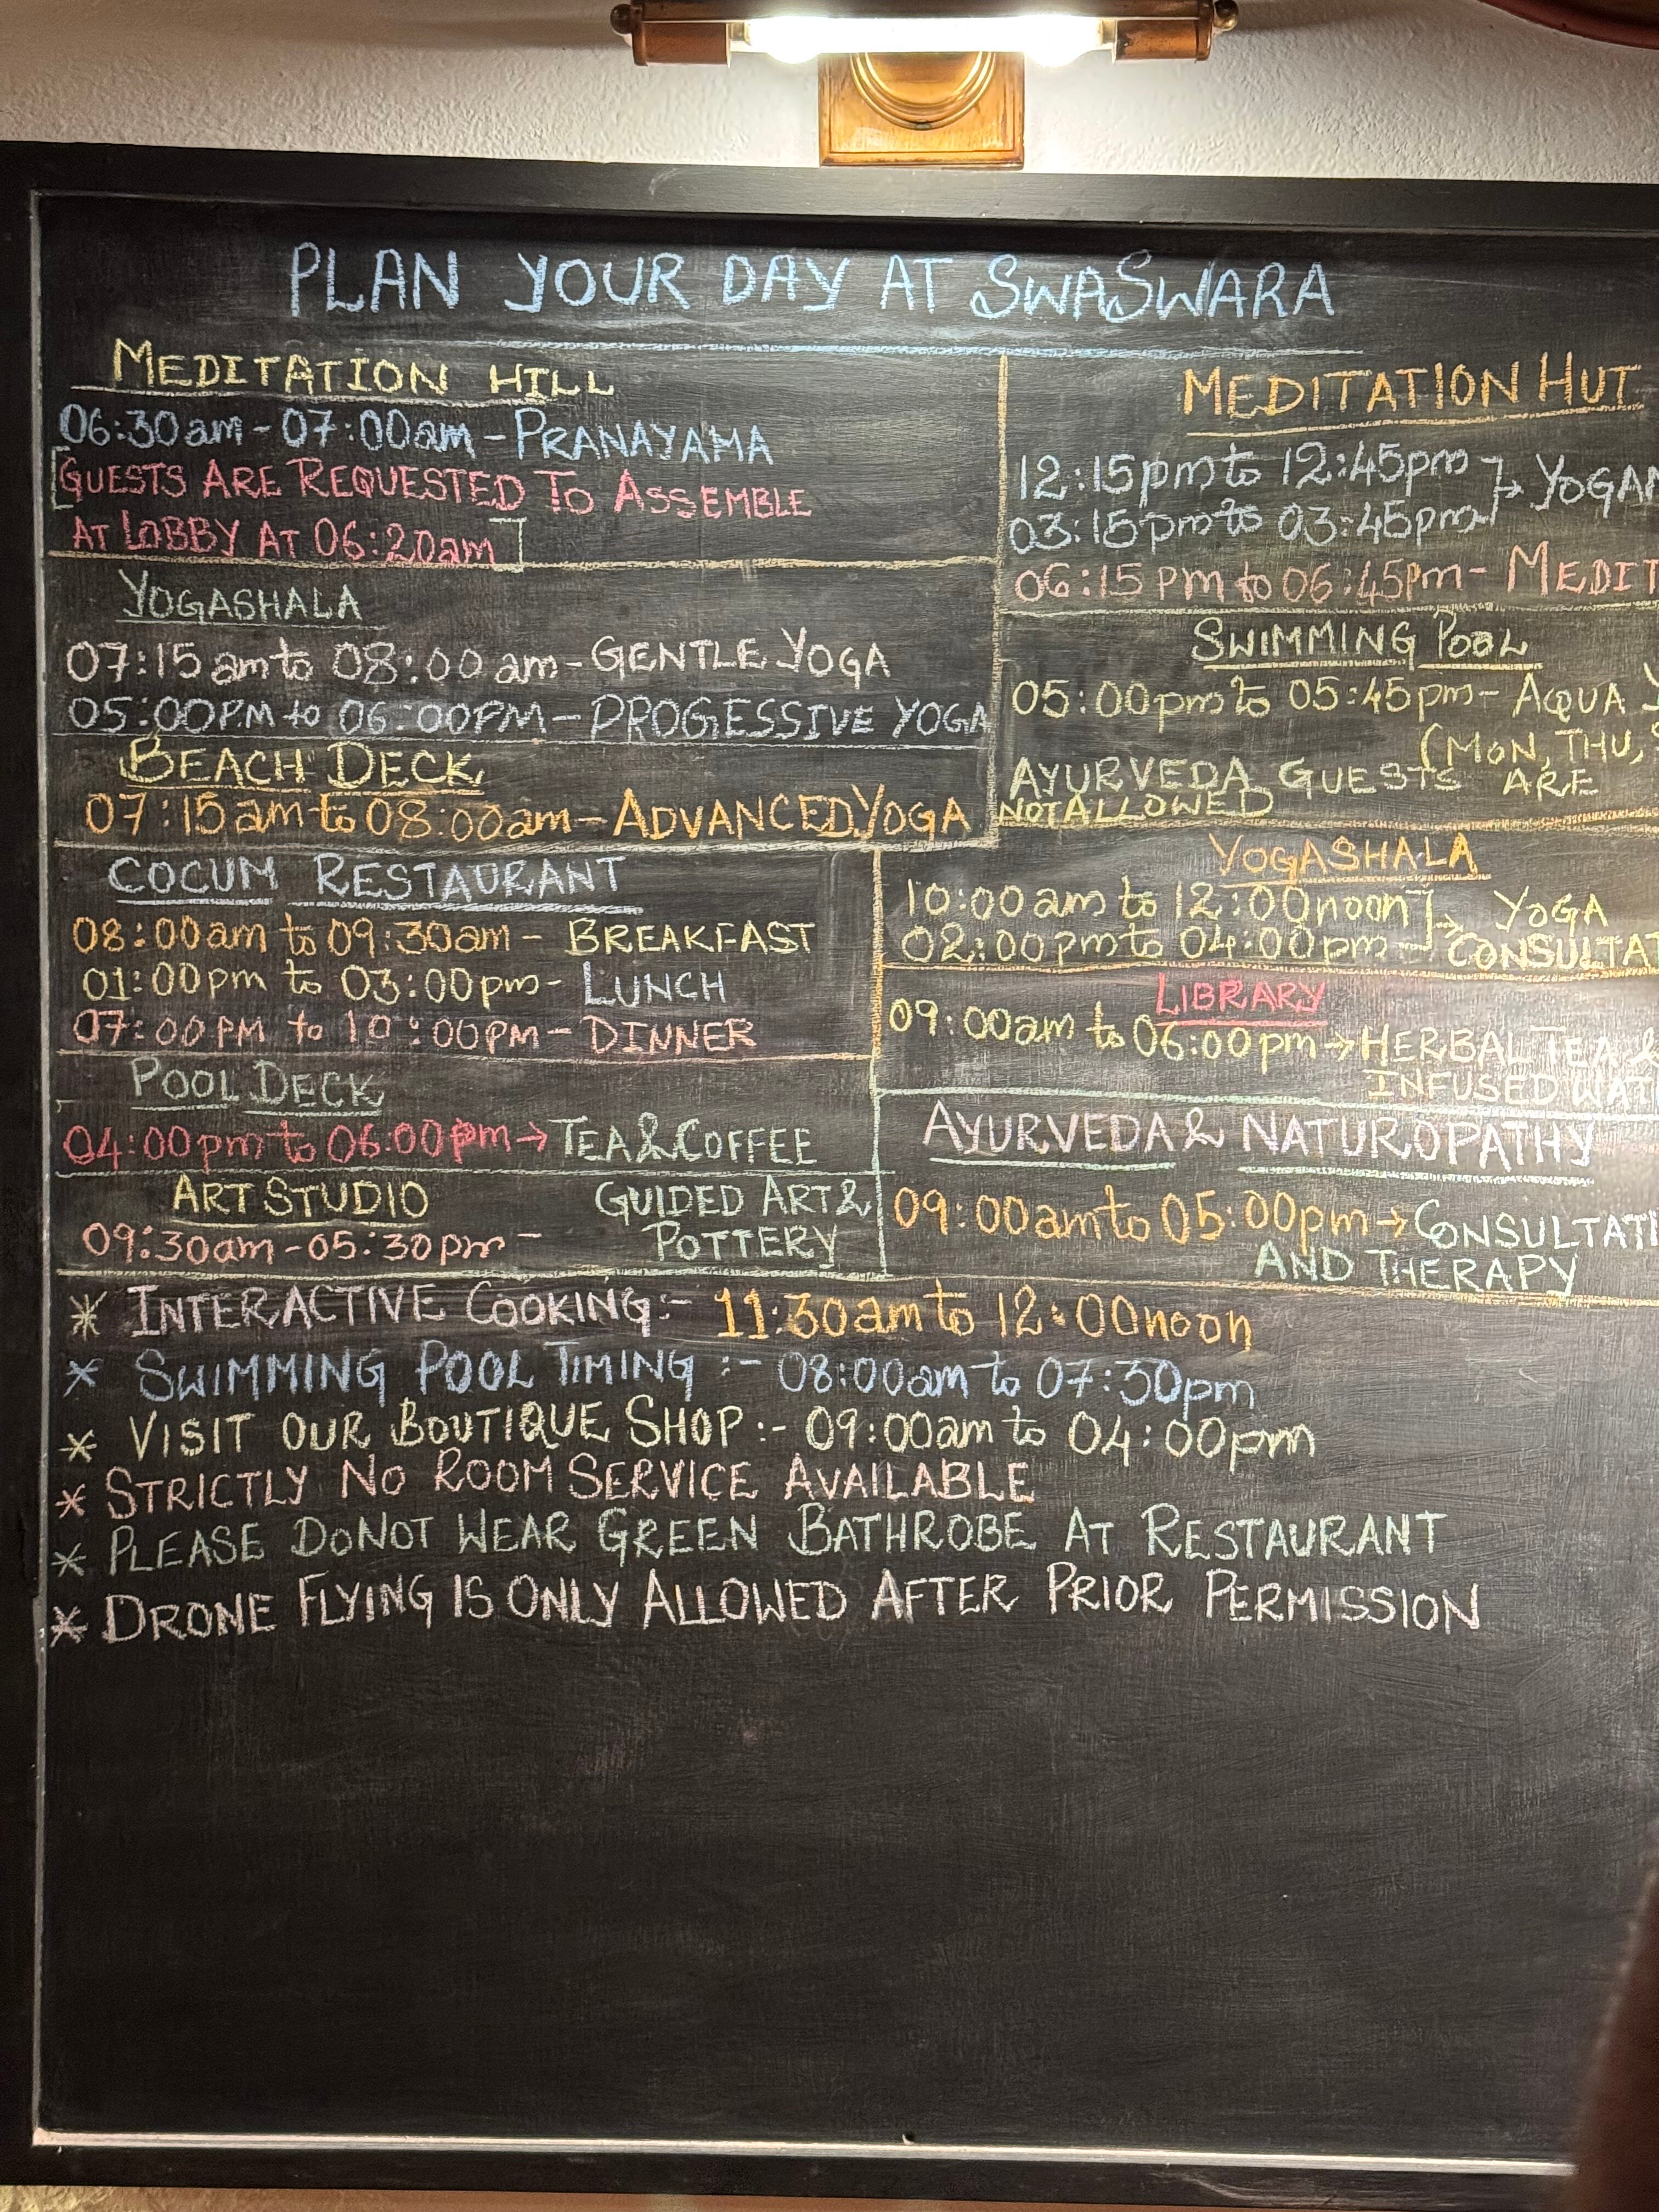 PLAN YOUR DAY AT SWASWARA
MEDITATION HILL
06:30am - 07:00am - PRANAYAMA
[GUESTS ARE REQUESTED TO ASSEMBLE
AT LOBBY AT 06:20am]
YOGASHALA
07:15am to 08:00am - GENTLE YOGA
05:00PM to 06:00PM - PROGESSIVE YOGA
BEACH DECK
07:15am to 08:00am - ADVANCED YOGA
COCUM RESTAURANT
08:00am to 09:30am - BREAKFAST
01:00pm to 03:00pm - LUNCH
07:00PM to 10:00PM - DINNER
POOL DECK
04:00pm to 06:00pm → TEA & COFFEE
ART STUDIO
09:30am - 05:30pm - GUIDED ART &
POTTERY
MEDITATION HUT
12:15pm to 12:45pm
03:15pm to 03:45pm → YOGAN
06:15pm to 06:45pm - MEDIT
SWIMMING POOL
05:00pm to 05:45pm - AQUA Y
(MON, THU,
AYURVEDA GUESTS ARE
NOT ALLOWED
YOGASHALA
10:00am to 12:00noon → YOGA
02:00pm to 04:00pm CONSULTAT
LIBRARY
09:00am to 06:00pm → HERBAL TEA &
INFUSED WAT
AYURVEDA & NATUROPATHY
09:00am to 05:00pm → CONSULTATI
AND THERAPY
* INTERACTIVE COOKING:- 11:30am to 12:00noon
* SWIMMING POOL TIMING :- 08:00am to 07:30pm
* VISIT OUR BOUTIQUE SHOP:- 09:00am to 04:00pm
* STRICTLY NO ROOM SERVICE AVAILABLE
* PLEASE DONOT WEAR GREEN BATHROBE AT RESTAURANT
* DRONE FLYING IS ONLY ALLOWED AFTER PRIOR PERMISSION